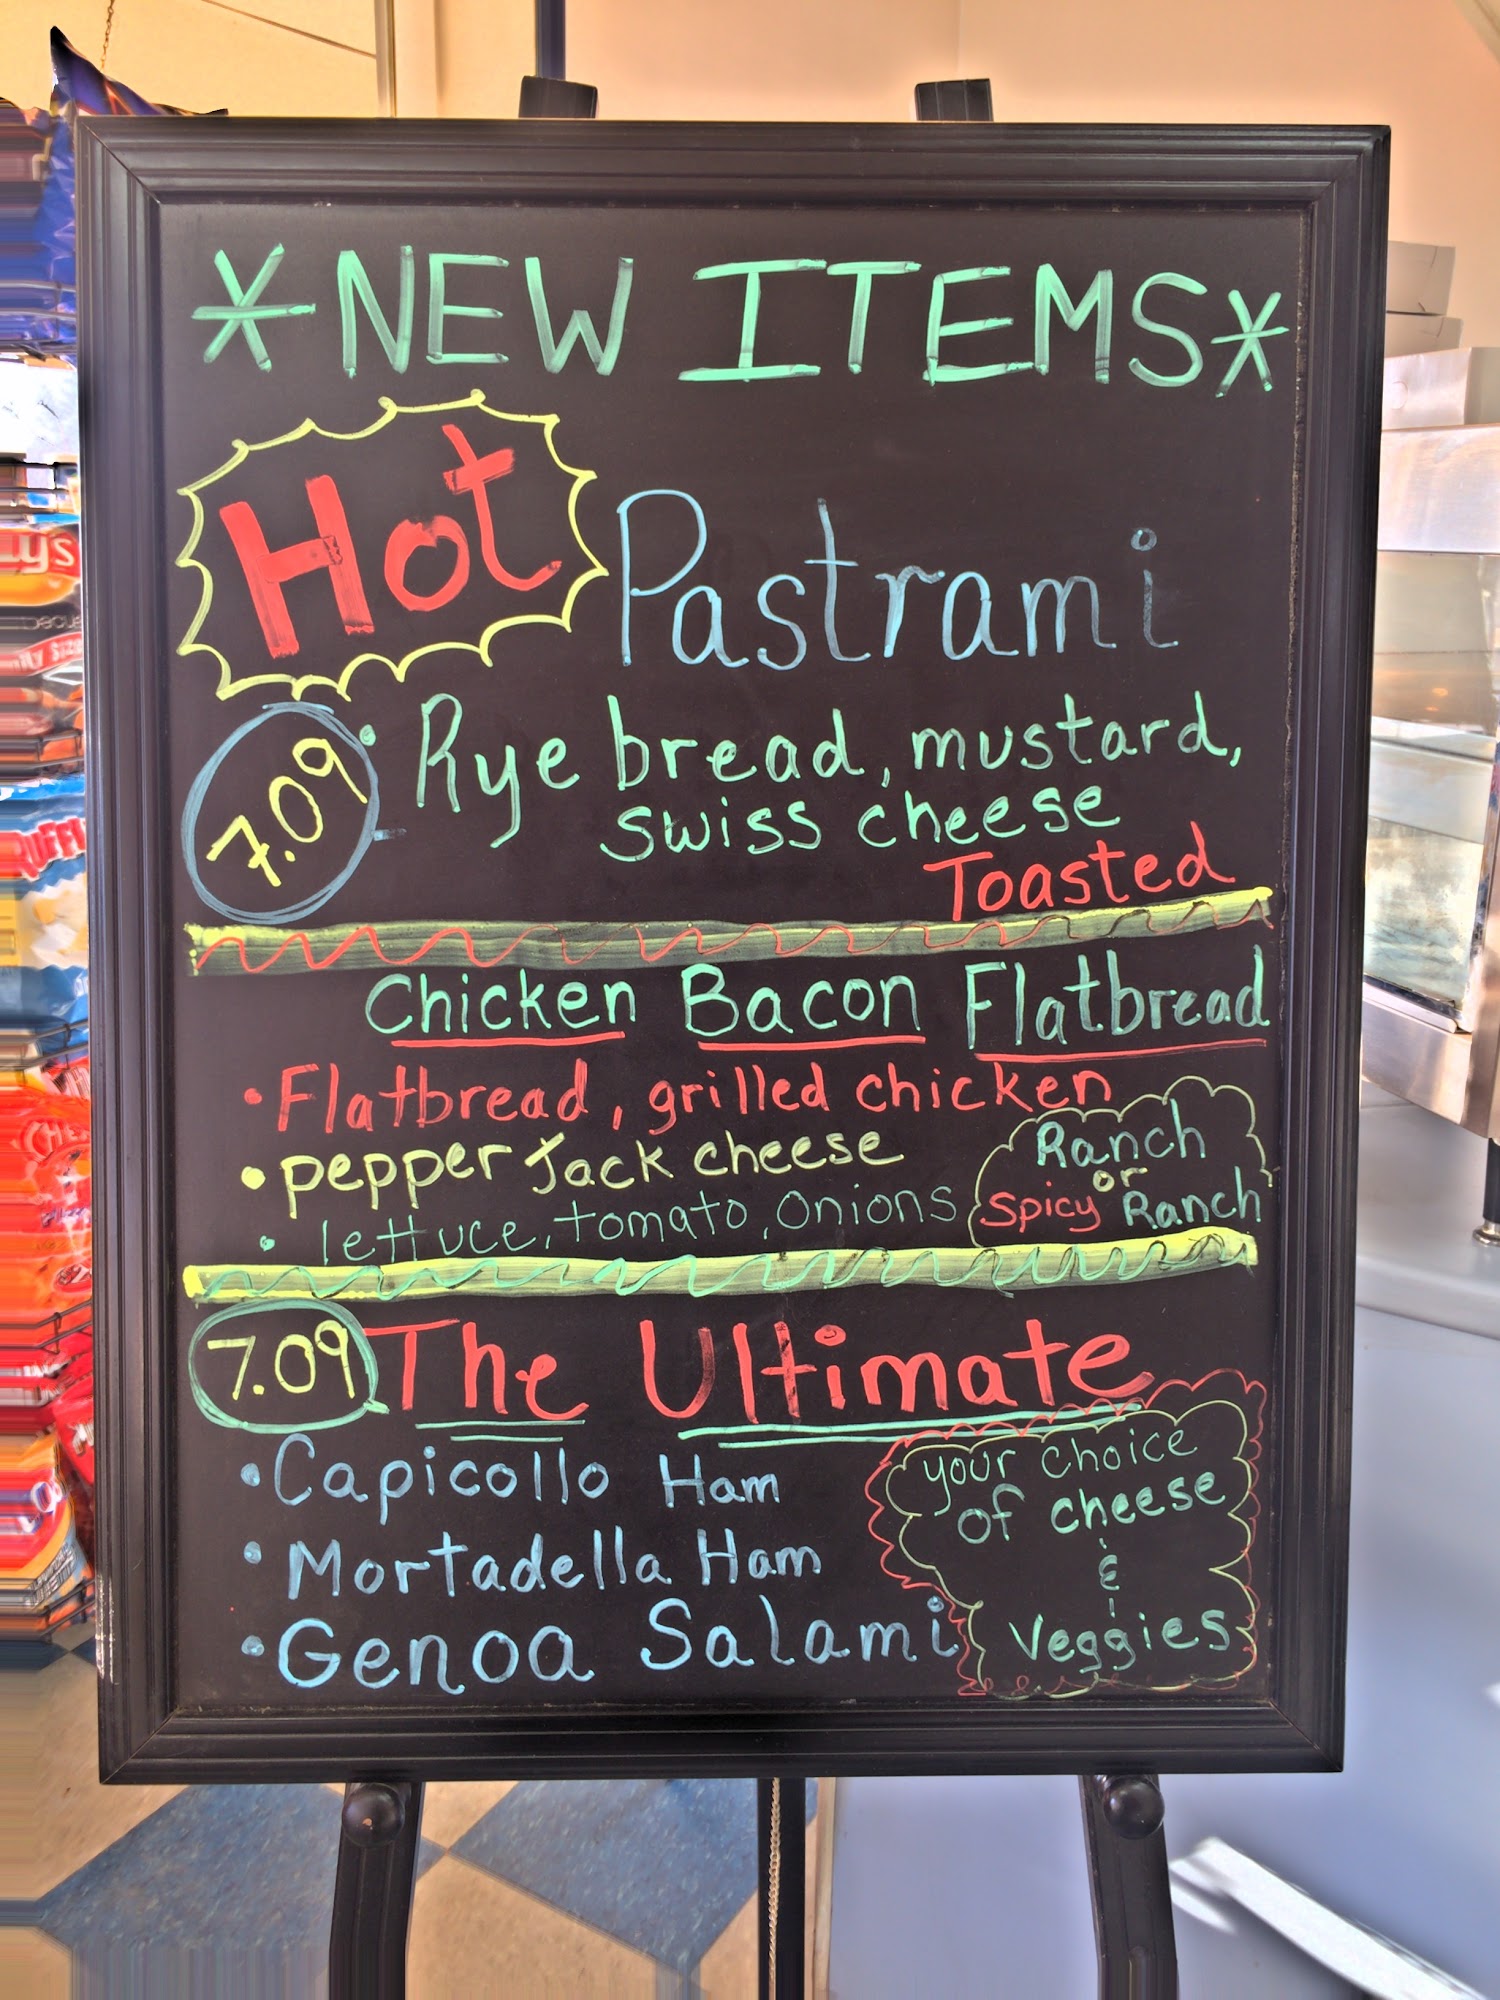 *NEW ITEMS*
Hot Pastrami
7.09
• Rye bread, mustard,
swiss cheese
Toasted
Chicken Bacon Flatbread
• Flatbread, grilled chicken
• pepper Jack cheese
• lettuce, tomato, onions
Ranch
or
Spicy Ranch
7.09 The Ultimate
• Capicollo Ham
• Mortadella Ham
• Genoa Salami
your choice
of cheese
&
Veggies